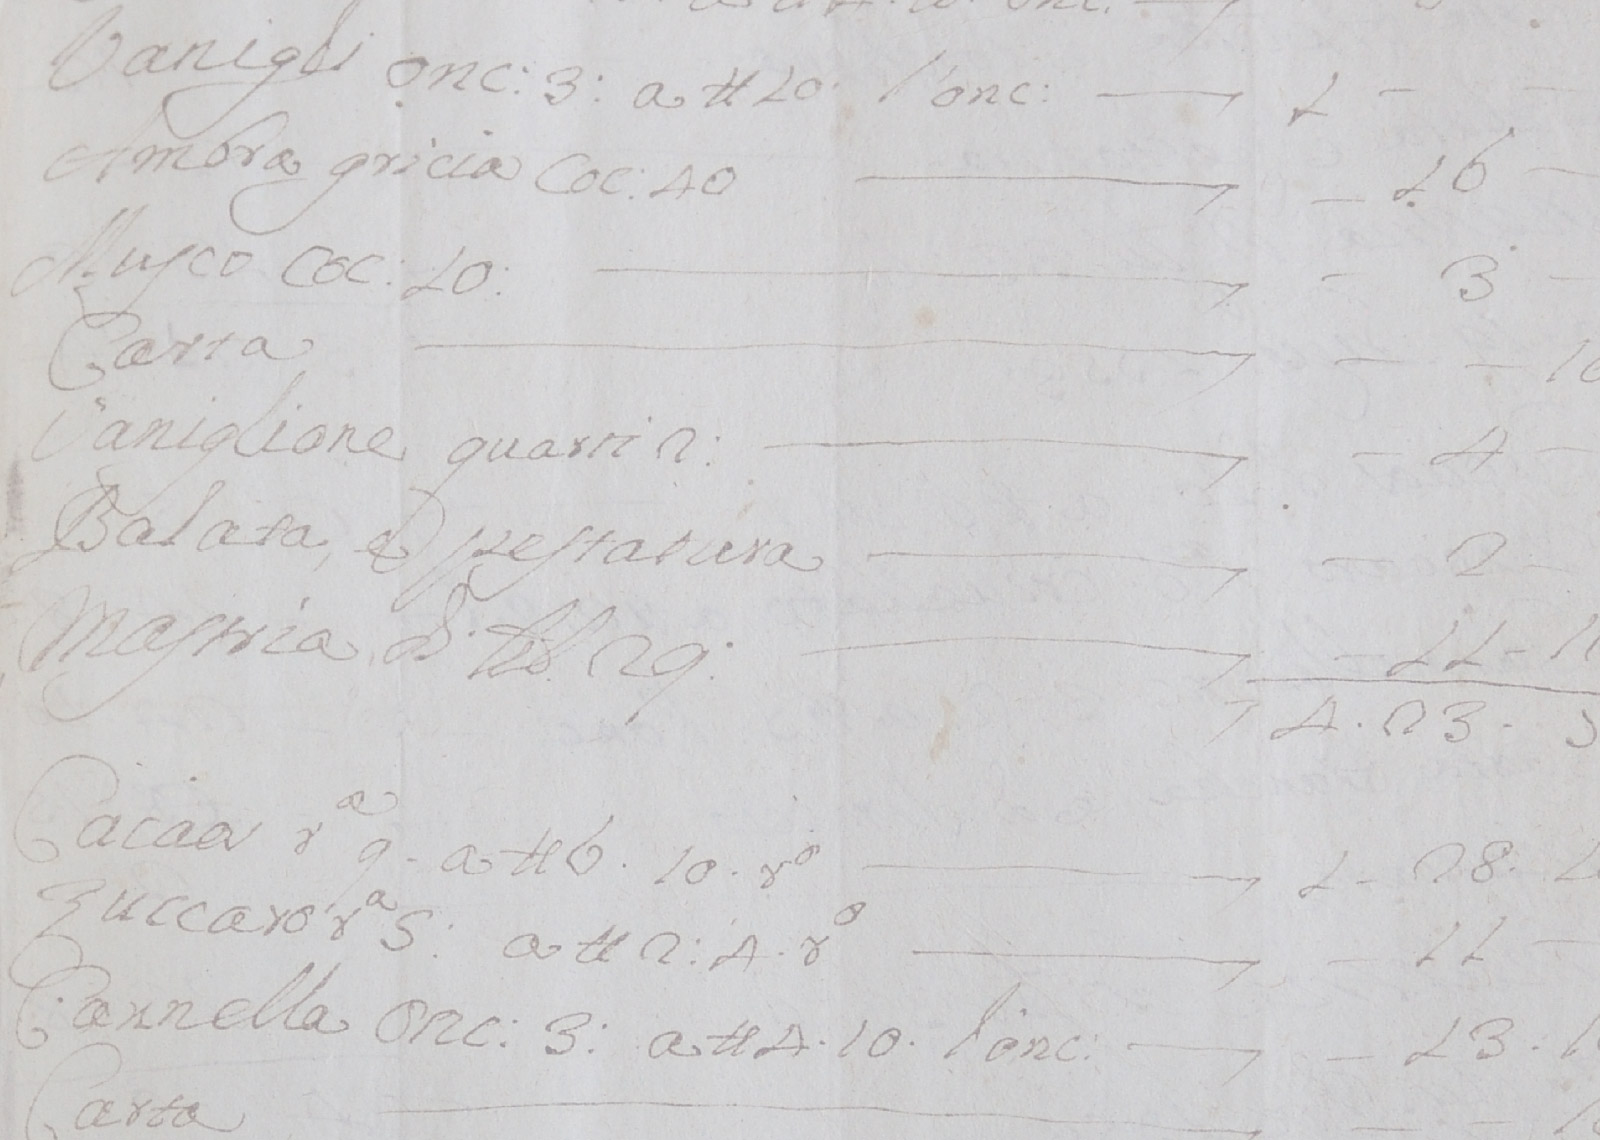 onc.
Vanigli onc: 3: a tt 10. l'onc: 1 -
Ambra gricia Coc: 40 - 16 -
Musco Coc: 10: - 3 -
Carta - - 10
Vaniglione quarti 2: - 4 -
Balata, e pestatura - 2 -
Mastria, di lib. 29: - 11 - 1
4. 23. 5
Cacao rª 9. a tt 6. 10. rº 1 - 28.
Zuccaro rª 5: a tt 2: 4. rº - 11 -
Cannella onc: 3: a tt 4. 10. l'onc: - 13. 1
Carta - - 1